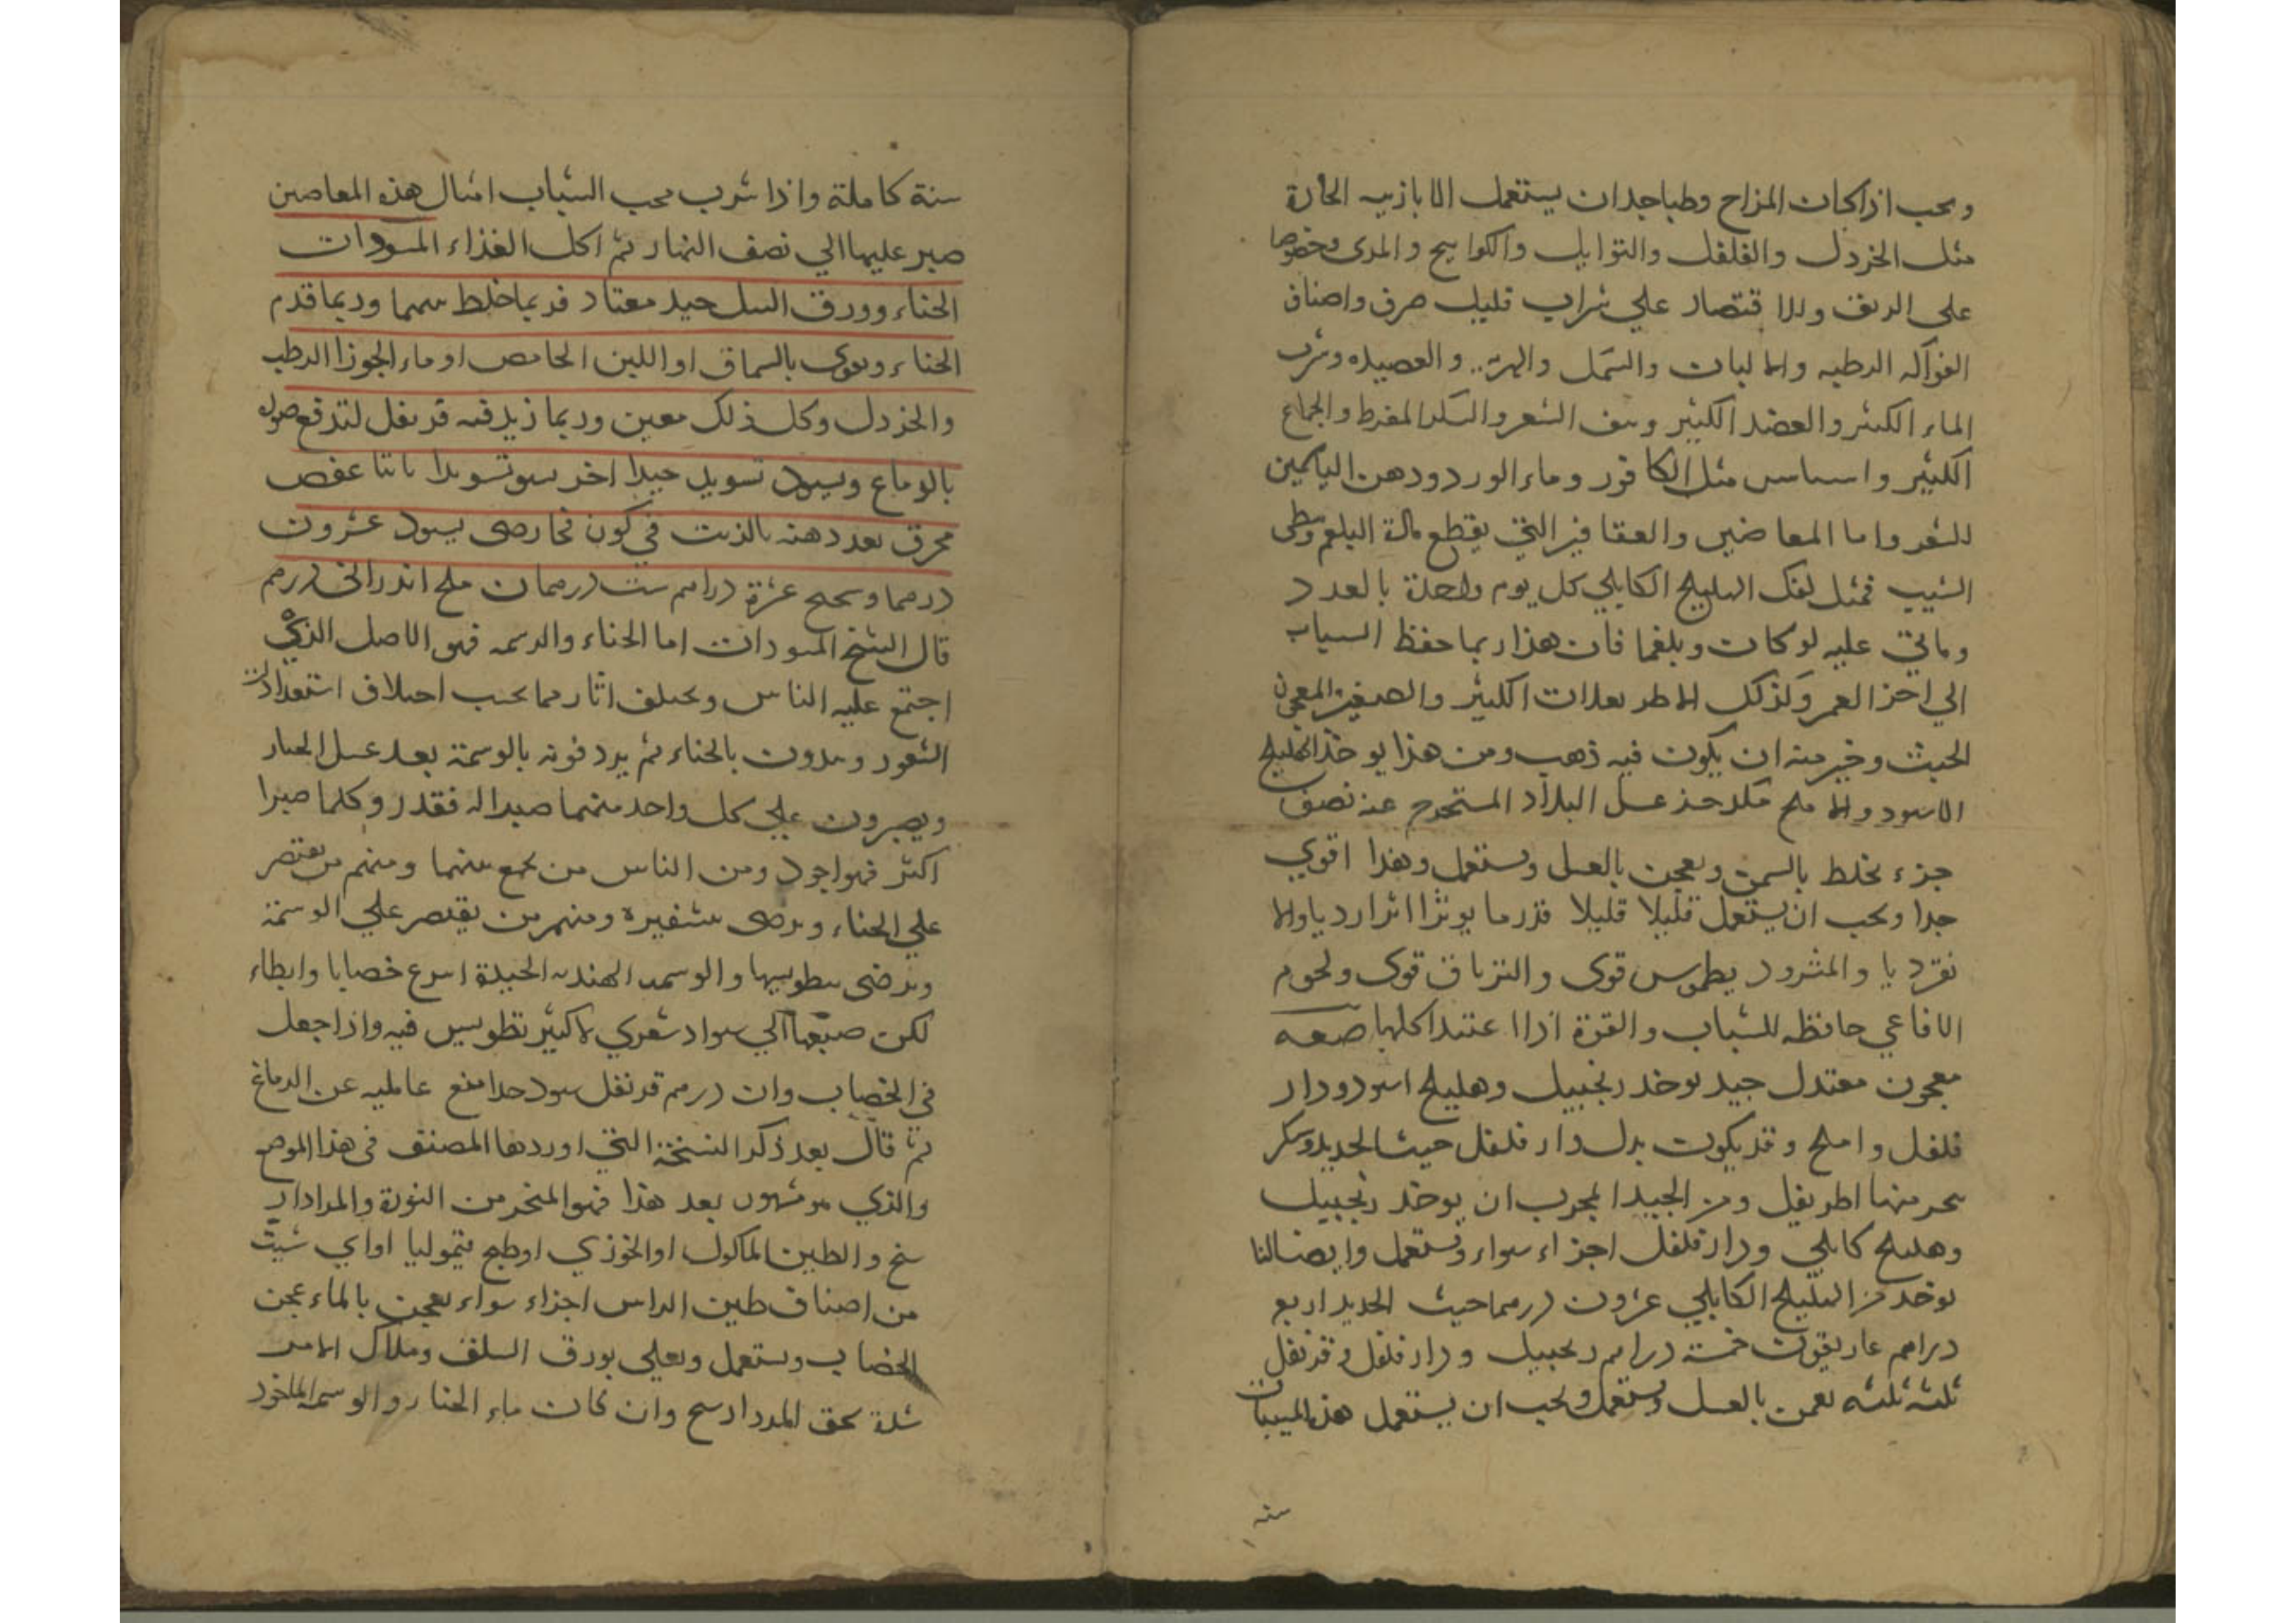 ويجب اذا كان المزاج وطبا جدا ان يستعمل الابازيه الحارة
مثل الخردل والفلفل والتوابل والكواميح والمرى وخصوصا
على الريق والاقتصار علي شراب قليل صرف واصناف
الفواكه الرطبه والالبان والسمك والهريسه والعصيده وشرب
الماء الكثير والفصد الكثير ونتف الشعر والسكر المفرط والجماع
الكثير واساس مثل الكافور وماء الورد ودهن الياسمين
للشعر واما المعاضين والعقاقير التي يقطع مادة البلغم وتبطى
الشيب فمثل لفك الهليلج الكابلي كل يوم واحدة بالعدد
وياتي عليه لو كان وبلغما فان هذا ربما حفظ السباب
الي احز العمر وكذلك الاطريفلات الكثير والصغير والمعجون
الخبث وخير منه ان يكون فيه ذهب ومن هذا يوخذ الهليلج
الاسود والاملج مكد حذ عسل البلاد المستخرج عنه نصف
جزء يخلط بالسمن ويعجن بالعسل ويستعمل وهذا اقوي
جدا ويجب ان يستعمل قليلا قليلا قزرما يوثر اثرا رديا والا
نقرديا والمثروديطوس قوى والترياق قوى ولحوم
الافاعي حافظه للشباب والقوة اذا اعتيد اكلها صفه
معجون معتدل جيد يوخد زنجبيل وهليلج اسود ودار
فلفل واملج وقد يكون بدل دار فلفل خبث الحديد وسكر
يتخد منها اطريفل ومن الجيد المجرب ان يوخد زنجبيل
وهليلج كابلي ودار فلفل اجزاء سواء ويستعمل وايضا لنا
يوخد من الهليلج الكابلي عشرون درهما خبث الحديد اربع
دراهم غاريقون خمسة دراهم زنجبيل ودار فلفل وقرنفل
ثلثه ثلثه يعجن بالعسل ويستعمل ويجب ان يستعمل هذه المسبيات
سنه
سنة كاملة واذا شرب محب الشباب امثال هذه المعاصين
صبر عليها الي نصف النهار ثم اكل الغذاء المسودات
الحناء وورق النيل جيد معتاد فربما خلط بينهما وربما قدم
الحناء ويقوى بالسماق او اللبن الحامض او ماء الجوز الرطب
والخردل وكل ذلك معين وربما زيد فيه قرنفل لتدفع ضوله
بالوماع ويسود تسويد جيدا اخر يسود تسويدا ثابتا عفص
محرق بعد دهنه بالزيت في كون فخار حتى يسود عشرون
درهما ونحاس عشرة دراهم شب درهمان ملح اندرانى درهم
قال الشيخ المسودات اما الحناء والوسمه فهو الاصل الذي
اجتمع عليه الناس ويختلف اثارهما بحسب اختلاف استعدادات
الشعور ويبدون بالحناء ثم يردفونه بالوسمة بعد غسل الحناء
ويصبرون علي كل واحد منهما صبرا له فقدر وكلما صبرا
اكثر فهو اجود ومن الناس من يجمع بينهما ومنهم من يقتصر
علي الحناء ويرضى بتشقيره ومنهم من يقتصر علي الوسمة
ويرضى بتطويسها والوسمه الهنديه الجيدة اسرع خضابا وابطاء
لكن صبغها الي سواد شعري لا كثير تطويس فيه واذا جعل
في الخضاب وان درهم قرنفل سود جدا ومنع غايلته عن الدماغ
ثم قال بعد ذكر النسخة التي اوردها المصنف في هذا الموضع
والذي هو مشهور بعد هذا فهو المتخذ من النورة والمرادار
سنج والطين الماكول او الخوزي او طين قيموليا او اي شيت
من اصناف طين الراس اجزاء سواء يعجن بالماء عجن
الخضاب ويستعمل ويعلي بورق السلق وملاك الامر
شدة سحق المرداسنج وان كان ماء الحنا والوسمه الماخود